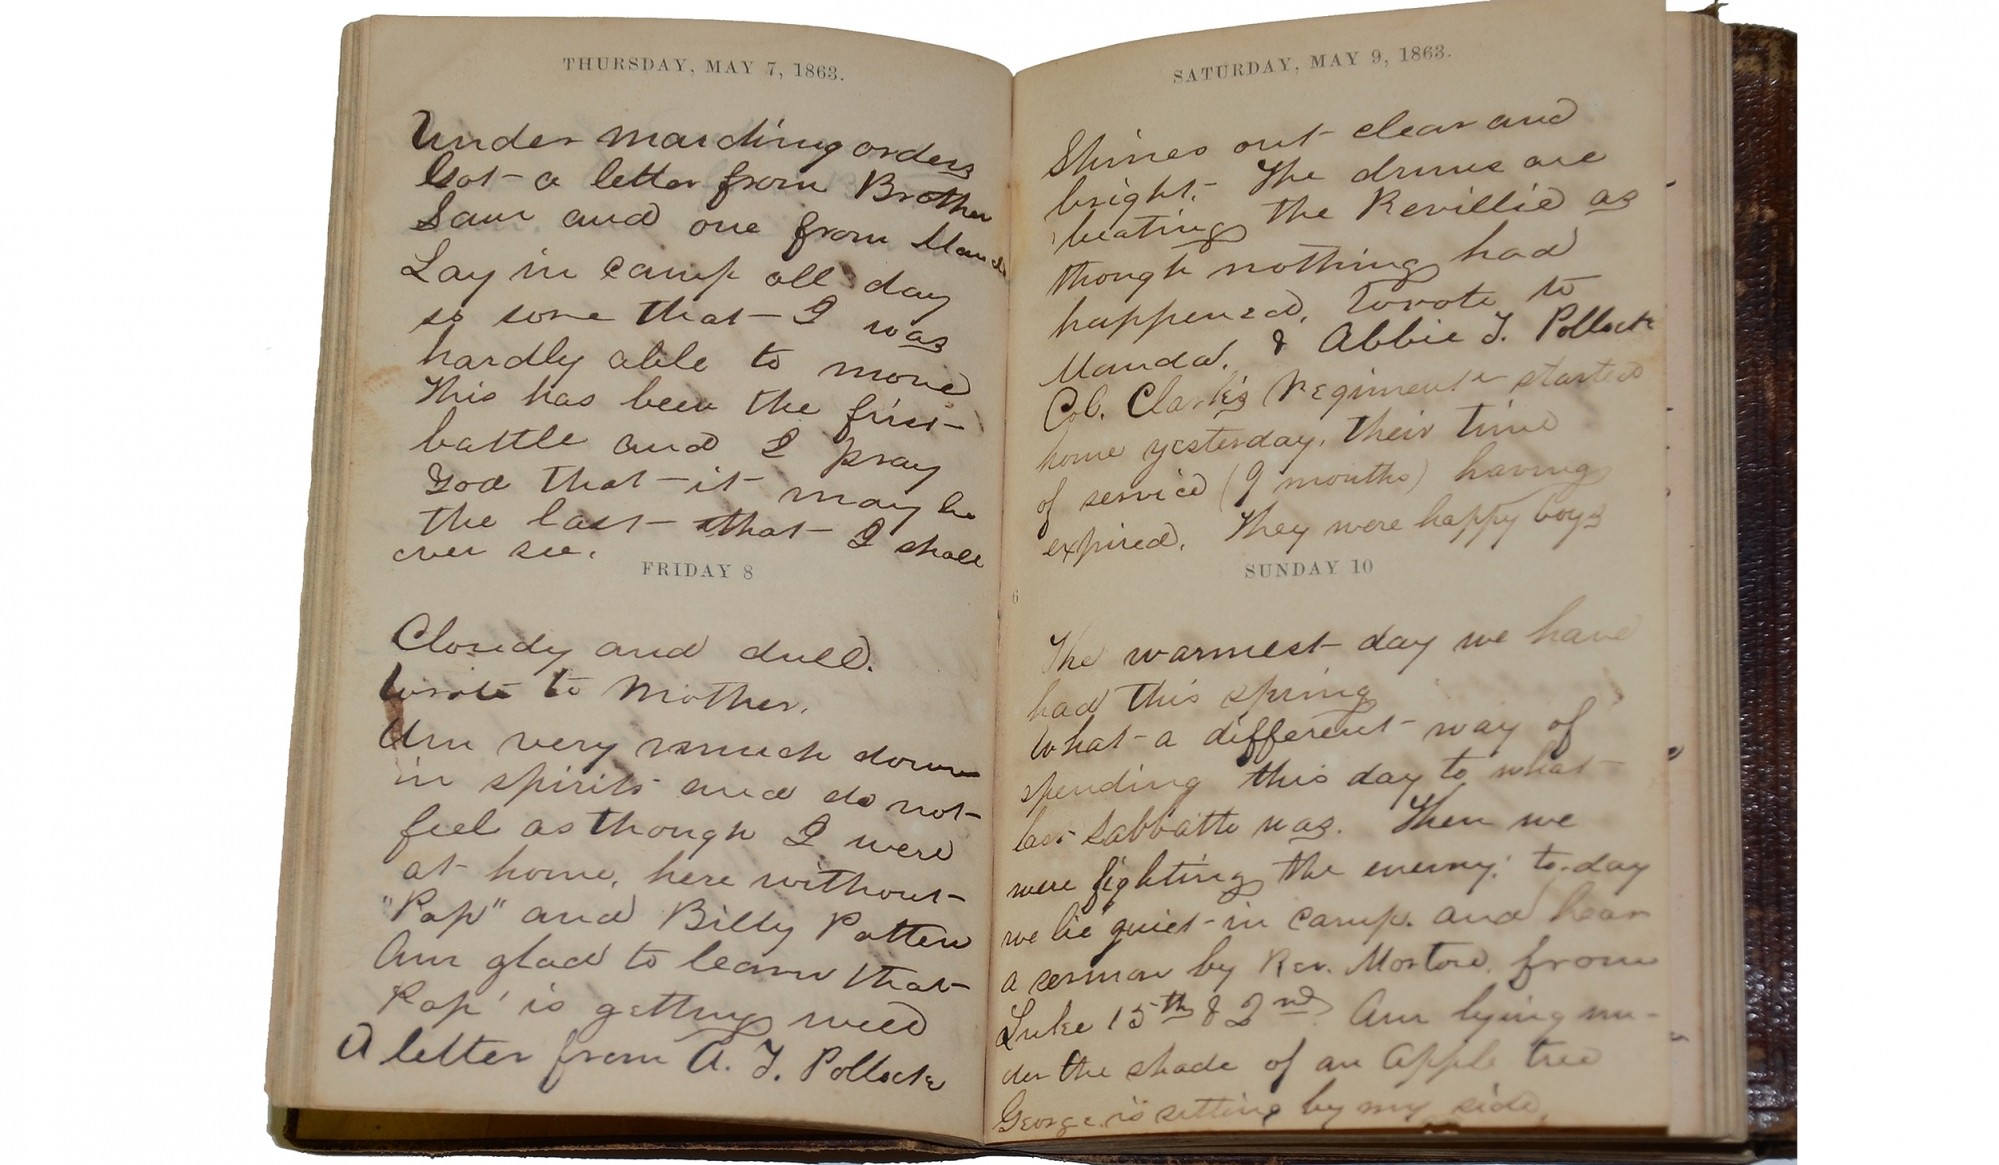 THURSDAY, MAY 7, 1863.
Under marching orders
Got a letter from Brother
Sam and one from Manda
Lay in camp all day
so sore that I was
hardly able to move
This has been the first
battle and I pray
God that it may be
the last that I shall
ever see.
FRIDAY 8
Cloudy and dull.
Wrote to Mother.
Am very much down
in spirits and do not
feel as though I were
at home, here without
"Pap" and Billy Patten
Am glad to learn that
Pap' is getting well
A letter from A. T. Pollock
SATURDAY, MAY 9, 1863.
Shines out clear and
bright. The drums are
beating the Revillie as
though nothing had
happened. Wrote to
Manda. & Abbie T. Pollock
Col. Clark's Regiment started
home yesterday. their time
of service (9 months) having
expired. They were happy boys
SUNDAY 10
6
The warmest day we have
had this spring
What a different way of
spending this day to what
last Sabbath was. Then we
were fighting the enemy; to-day
we lie quiet in camp. and hear
a sermon by Rev. from
Luke 15th & 2nd Am lying un-
der the shade of an apple tree
George is setting by my side.